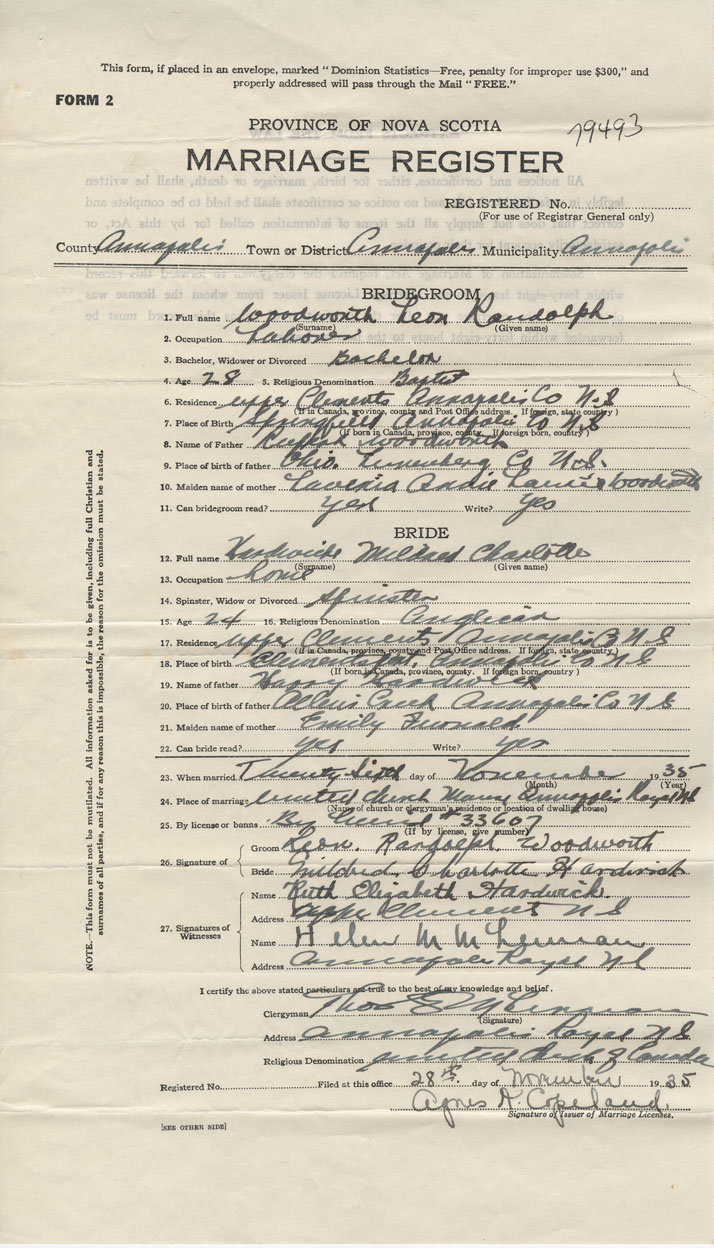 This form, if placed in an envelope, marked "Dominion Statistics—Free, penalty for improper use $300," and
properly addressed will pass through the Mail "FREE."
FORM 2
PROVINCE OF NOVA SCOTIA
79493
MARRIAGE REGISTER
REGISTERED No.
(For use of Registrar General only)
County Annapolis Town or District Annapolis Municipality Annapolis
BRIDEGROOM
1. Full name Woodworth Leon Randolph
(Surname) (Given name)
2. Occupation Laborer
3. Bachelor, Widower or Divorced Bachelor
4. Age 28 5. Religious Denomination Baptist
6. Residence Upper Clements Annapolis Co N.S
(If in Canada, province, county and Post Office address. If foreign, state country)
7. Place of Birth Springfield Annapolis Co N.S
(If born in Canada, province, county. If foreign born, country)
8. Name of Father Woodworth
9. Place of birth of father Ohio. Lunenberg Co N.S.
10. Maiden name of mother Lavenia Annie Woodworth
11. Can bridegroom read? Yes Write? Yes
BRIDE
12. Full name Hardwick Mildred Charlotte
(Surname) (Given name)
13. Occupation home
14. Spinster, Widow or Divorced Spinster
15. Age 24 16. Religious Denomination Anglican
17. Residence Upper Clements Annapolis N S
(If in Canada, province, county and Post Office address. If foreign, state country)
18. Place of birth Annapolis Co N S
(If born in Canada, province, county. If foreign born, country)
19. Name of father Harry Hardwick
20. Place of birth of father Creek Annapolis Co N S
21. Maiden name of mother Emily
22. Can bride read? Yes Write? Yes
23. When married Twenty Sixth day of November 1935
(Month) (Year)
24. Place of marriage United Church Manse Annapolis Royal NS
(Name of church or clergyman's residence or location of dwelling house)
25. By license or banns By License # 33607
(If by license, give number)
26. Signature of
Groom Leon. Randolph Woodworth
Bride Mildred Charlotte Hardwick
27. Signatures of Witnesses
Name Ruth Elizabeth Hardwick.
Address Upper Clements N S
Name Helen M
Address Annapolis Royal N S
I certify the above stated particulars are true to the best of my knowledge and belief.
Clergyman Thos
(Signature)
Address Annapolis Royal N S
Religious Denomination United Church of Canada
Registered No. Filed at this office 28th. day of November 1935
Agnes A. Copeland.
Signature of Issuer of Marriage Licenses.
[SEE OTHER SIDE]
NOTE.—This form must not be mutilated. All information asked for is to be given, including full Christian and
surnames of all parties, and if for any reason this is impossible, the reason for the omission must be stated.